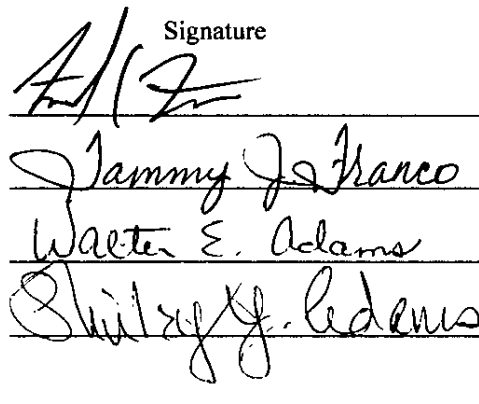 Signature
Tammy J. Franco
Walter E. Adams
Shirley Y. Adams